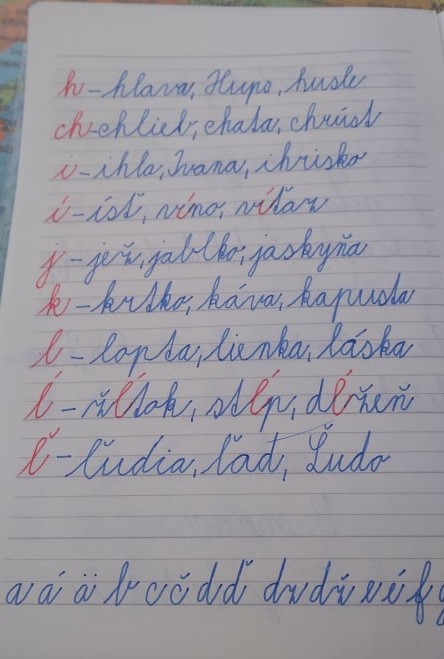 h - hlava, Hugo, husle
ch - chlieb, chata, chrúst
i - ihla, Ivana, ihrisko
í - ísť, víno, víťaz
j - jež, jablko, jaskyňa
k - krtko, káva, kapusta
l - lopta, lienka, láska
ĺ - žĺtok, stĺp, dĺžeň
ľ - ľudia, ľad, Ľudo
a á ä b c č d ď dz dž e é f g